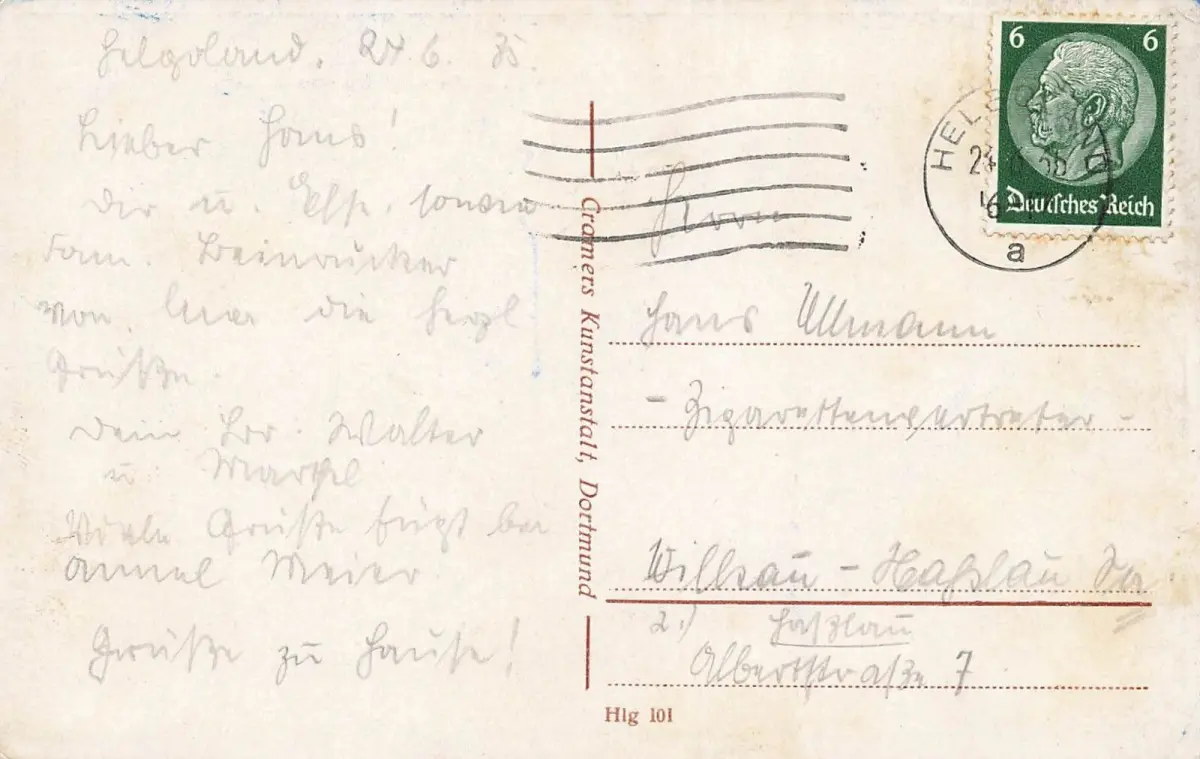 Helgoland, 24.6.35.
Lieber Hans!
Dir u. Else sowie
Fam. Beinrucker
von hier die herzl
Grüße.
Dein Walter
u.
Viele Grüße fügt bei
Annel Meier
Grüße zu Hause!
Cramers Kunstanstalt, Dortmund
6 6
Deutsches Reich
HELGOLAND
a
Herrn
Hans Ullmann
- Zigarettenvertreter -
Wilkau - Haßlau Sa
2.) Haßlau
Albertstraße 7
Hlg 101